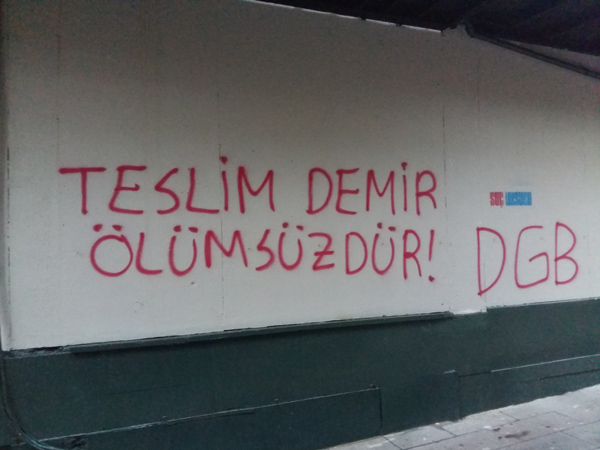 TESLİM DEMİR
ÖLÜMSÜZDÜR!
SUÇ
DGB